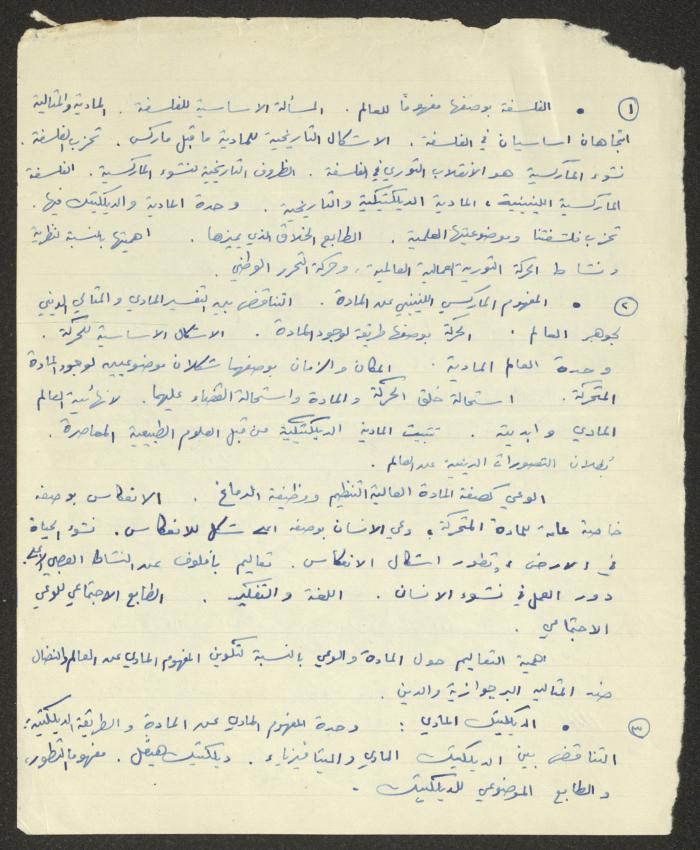 ١ • الفلسفة بوصفها مفهوماً للعالم . المسألة الاساسية للفلسفة . المادية والمثالية
اتجاهان اساسيان في الفلسفة . الاشكال التاريخية للمادية ما قبل ماركس . تحزب الفلسفة .
نشوء الماركسية هو الانقلاب الثوري في الفلسفة . الظروف التاريخية لنشوء الماركسية . الفلسفة
الماركسية اللينينية ، المادية الديالكتيكية والتاريخية . وحدة المادية والديالكتيك فيها .
تحزب فلسفتنا وموضوعيتها العلمية . الطابع الخلاق الذي يميزها . اهميتها بالنسبة لنظرية
ونشاط الحركة الثورية العمالية العالمية ، وحركة التحرر الوطني .
٢ • المفهوم الماركسي اللينيني عن المادة . التناقض بين التفسير المادي والمثالي الديني
لجوهر العالم . الحركة بوصفها طريقة لوجود المادة . الاشكال الاساسية للحركة .
وحدة العالم المادية . المكان والزمان بوصفهما شكلان موضوعيين لوجود المادة
المتحركة . استحالة خلق الحركة والمادة واستحالة القضاء عليهما . لا نهائية العالم
المادي وابديته . تثبيت المادية الديالكتيكية من قبل العلوم الطبيعية المعاصرة .
بطلان التصورات الدينية عن العالم .
الوعي كصفة المادة العالية التنظيم ووظيفة الدماغ . الانعكاس بوصفه
خاصة عامة للمادة المتحركة ، وعي الانسان بوصفه اعلى شكل للانعكاس . نشوء الحياة
في الارض ، وتطور اشكال الانعكاس . تعاليم بافلوف عن النشاط العصبي الاعلى .
دور العمل في نشوء الانسان . اللغة والتفكير . الطابع الاجتماعي للوعي
الاجتماعي .
اهمية التعاليم حول المادة والوعي بالنسبة لتكوين المفهوم المادي عن العالم والنضال
ضد المثالية البرجوازية والدين .
٣ • الديالكتيك المادي : وحدة المفهوم المادي عن المادة والطريقة الديالكتيكية :
التناقض بين الديالكتيك المادي والميتافيزياء . ديالكتيك هيغل . مفهوم التطور ،
والطابع الموضوعي للديالكتيك .